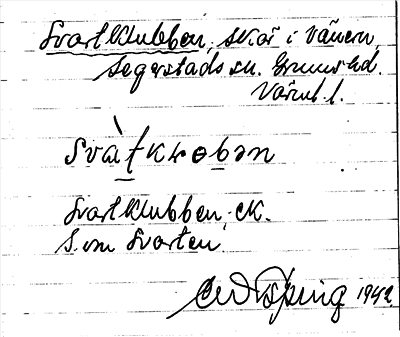 Svartklubben, skär i Vänern,
Segerstads sn. Grums hd.
Värml. l.
Svàtkrobən
Svartklubben. EK.
S. om Svarten.
1942